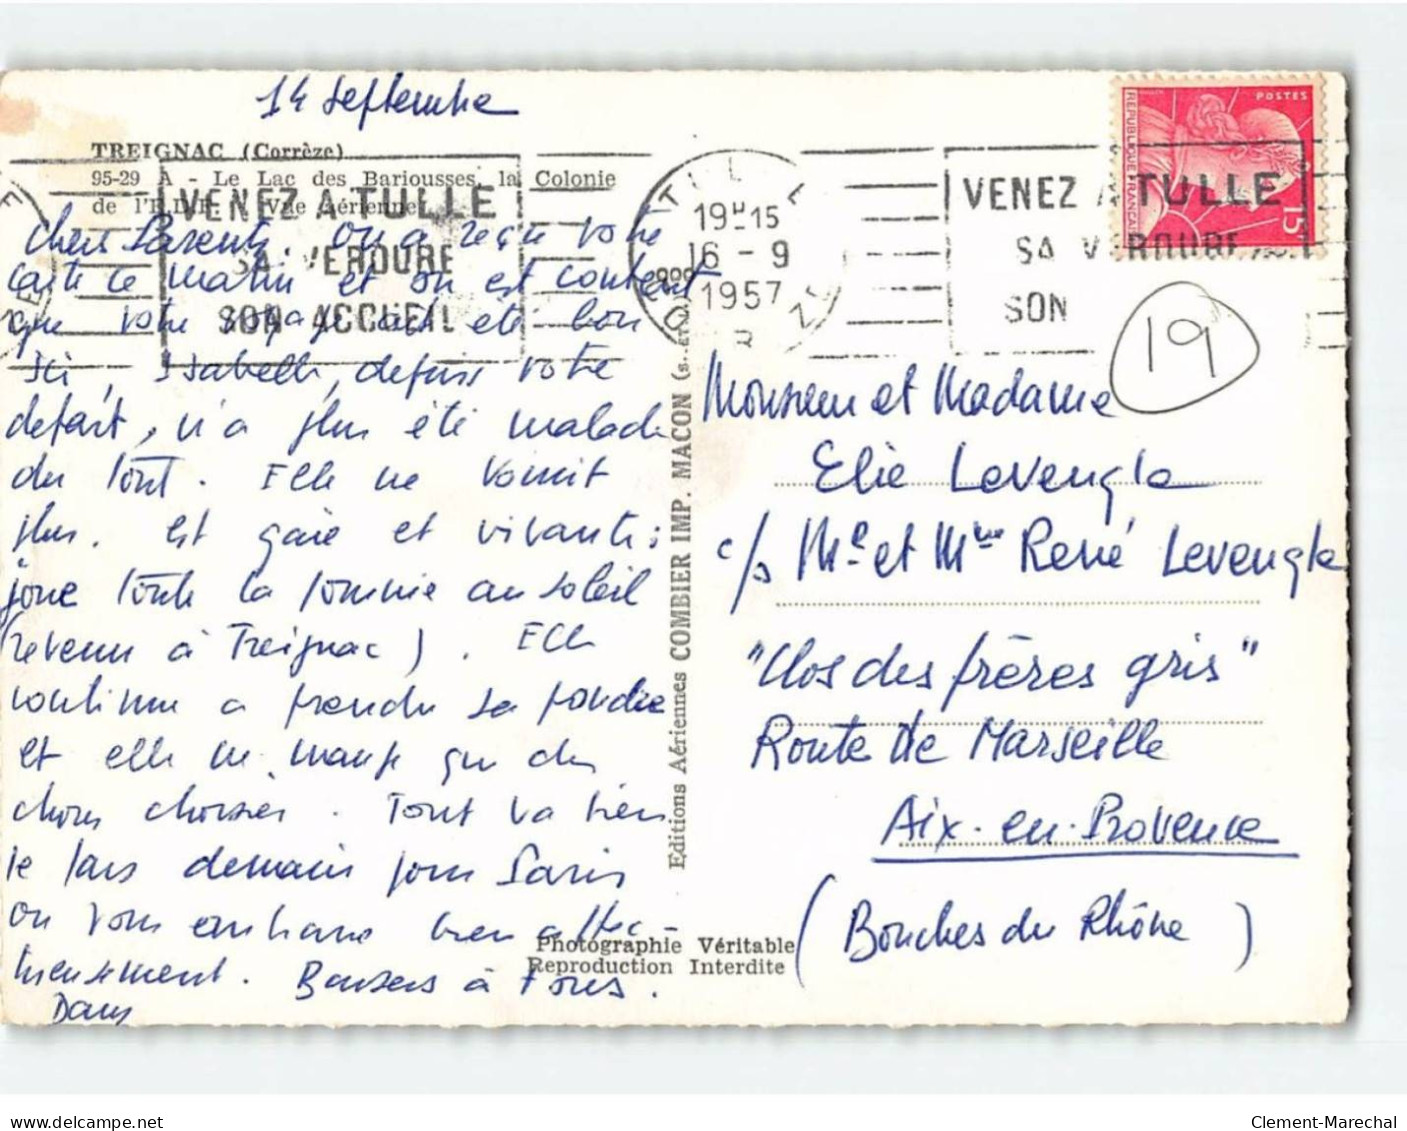 14 septembre
TREIGNAC (Corrèze)
95-29 A - Le Lac des Bariousses, la Colonie
de l'E.D.F. - Vue Aérienne
VENEZ A TULLE
SA VERDURE
SON ACCUEIL
TULLE
19H15
16 - 9
1957
CORRÈZE
VENEZ A TULLE
SA VERDURE
SON
POSTES
REPUBLIQUE FRANÇAISE
15F
19
Chers Parents. On a reçu votre
carte ce matin et on est content
que votre voyage ait été bon
Ici, Isabelle, depuis votre
départ, n'a plus été malade
du tout. Elle ne vomit
plus. est gaie et vivante;
joue toute la journée au soleil
(revenu à Treignac). Elle
continue à prendre sa poudre
et elle ne mange que des
choses choisies. Tout va bien
Je pars demain pour Paris
on vous embrasse bien affec-
tueusement. Baisers à Tous.
Dany
Editions Aériennes COMBIER IMP. MACON (s.-et-
Photographie Véritable
Reproduction Interdite
Monsieur et Madame
Elie Levengle
c/s Mr et Mme René Levengle
"Clos des frères gris"
Route de Marseille
Aix-en-Provence
(Bouches du Rhône)
delcampe.net
Clement-Marechal